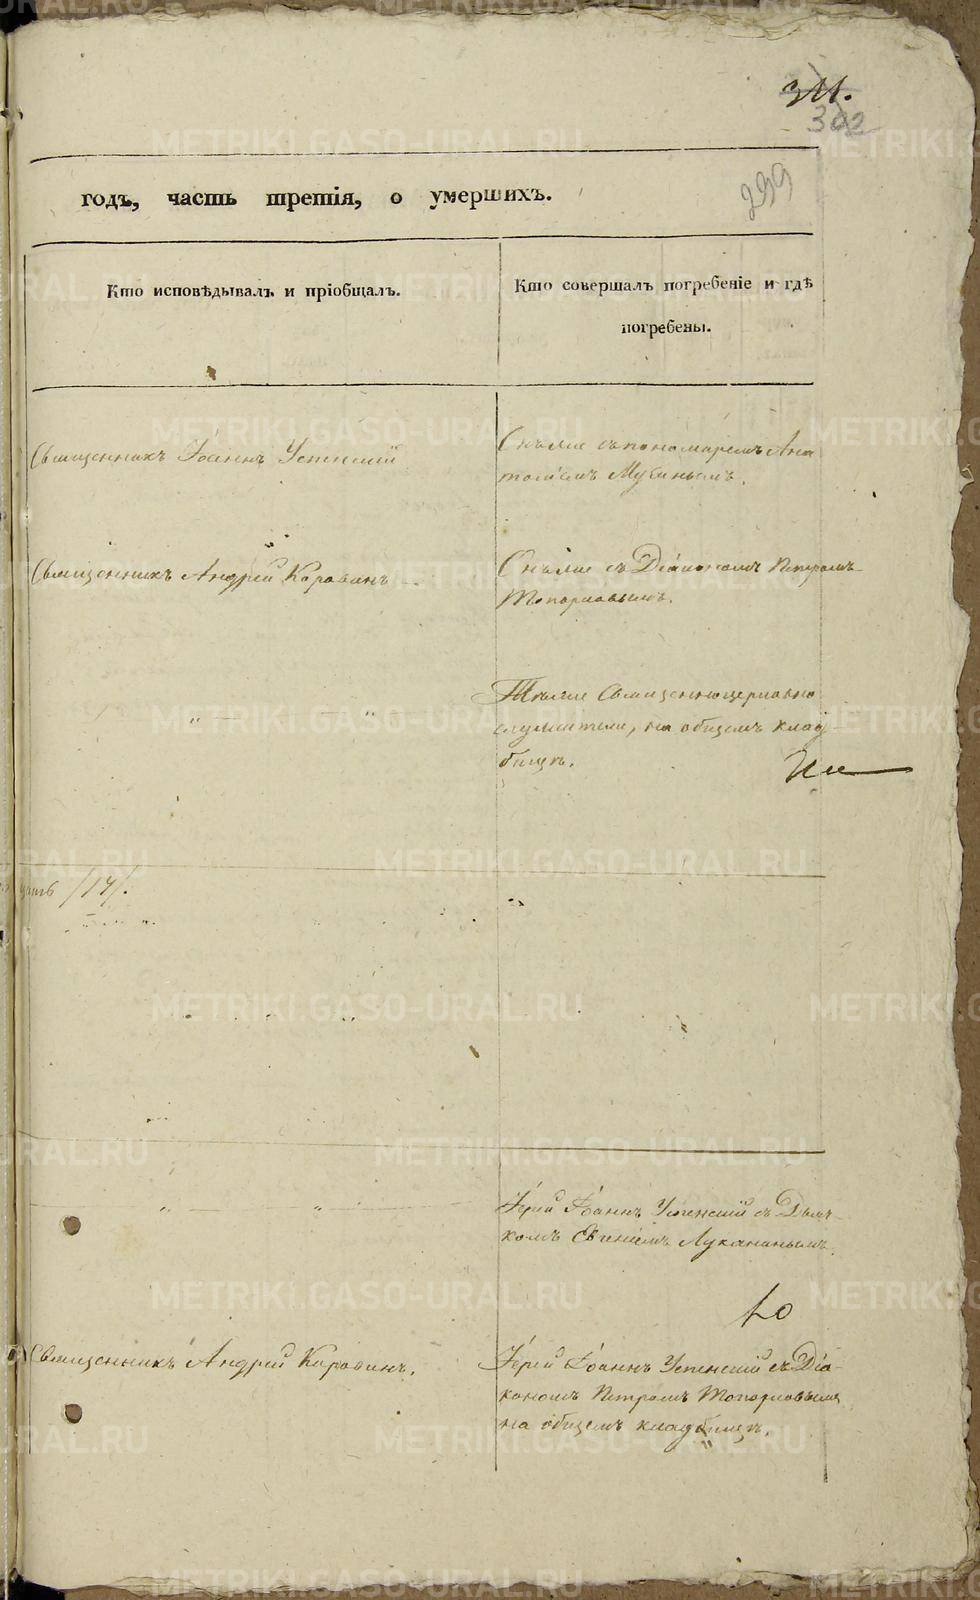 311.
302
299
годъ, часть третія, о умершихъ.
Кто исповѣдывалъ и пріобщалъ.
Кто совершалъ погребеніе и гдѣ
погребены.
Священникъ Іоаннъ Успенскій
Онъ же съ пономаремъ Ана
толіемъ
Священникъ Андрей Коровинъ
Онъ же съ Діакономъ Петромъ
Топорковымъ.
„ — „
Тѣ же Священноцерковно
служители, на общемъ клад-
бищѣ.
/14/.
„ — „
Іерей Іоаннъ Успенскій съ Дьяч-
комъ Евгеніемъ Луканинымъ.
Священникъ Андрей Коровинъ.
Іерей Іоаннъ Успенскій съ Діа-
кономъ Петромъ Топорковымъ
на общемъ кладбищѣ.
METRIKI.GASO-URAL.RU